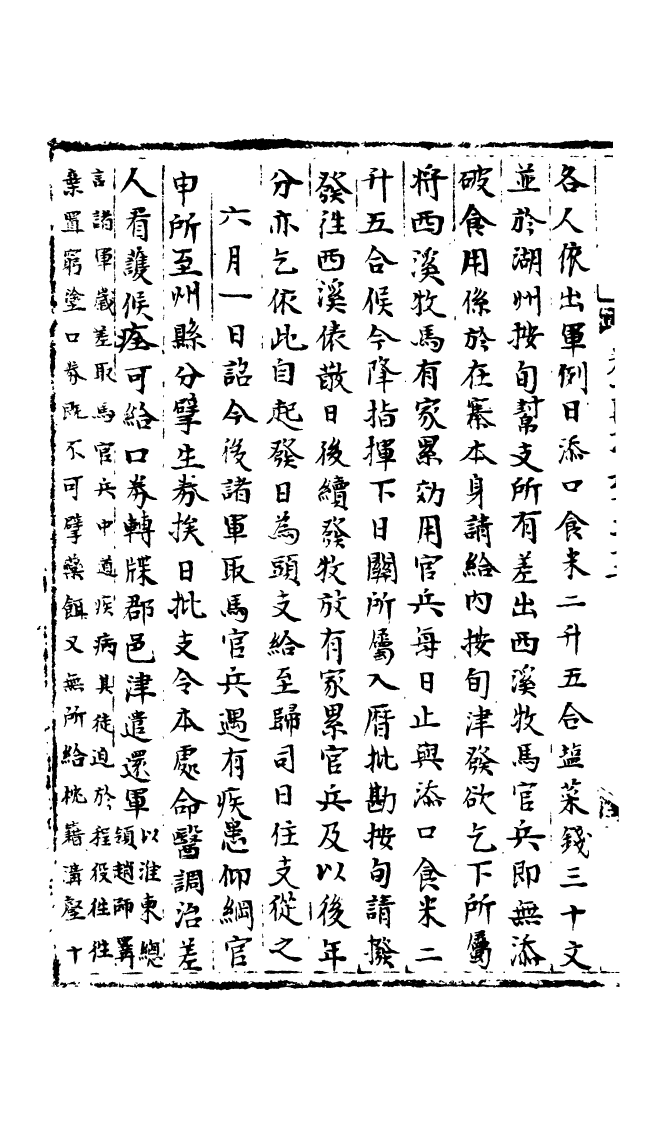 各人依出軍例日添口食米二升五合塩菜錢三十文
並於湖州按旬幫支所有差出西溪牧馬官兵即無添
破食用係於在寨本身請給内按旬津發欲乞下所屬
將西溪牧馬有家累効用官兵每日止與添口食米二
升五合候今降指揮下日關所屬入曆批勘按旬請撥
發往西溪俵散日後續發牧放有家累官兵及以後年
分亦乞依此自起發日為頭支給至歸司日住支從之
六月一日詔今後諸軍取馬官兵遇有疾患仰綱官
申所至州縣分擘生券挨日批支令本處命醫調治差
人看護候痊可給口券轉牒郡邑津遣還軍以淮東總
領趙師𢍰
言諸軍歲差取馬官兵中道疾病其徒迫於程役往往
棄置窮塗口券既不可擘藥餌又無所給枕藉溝壑十